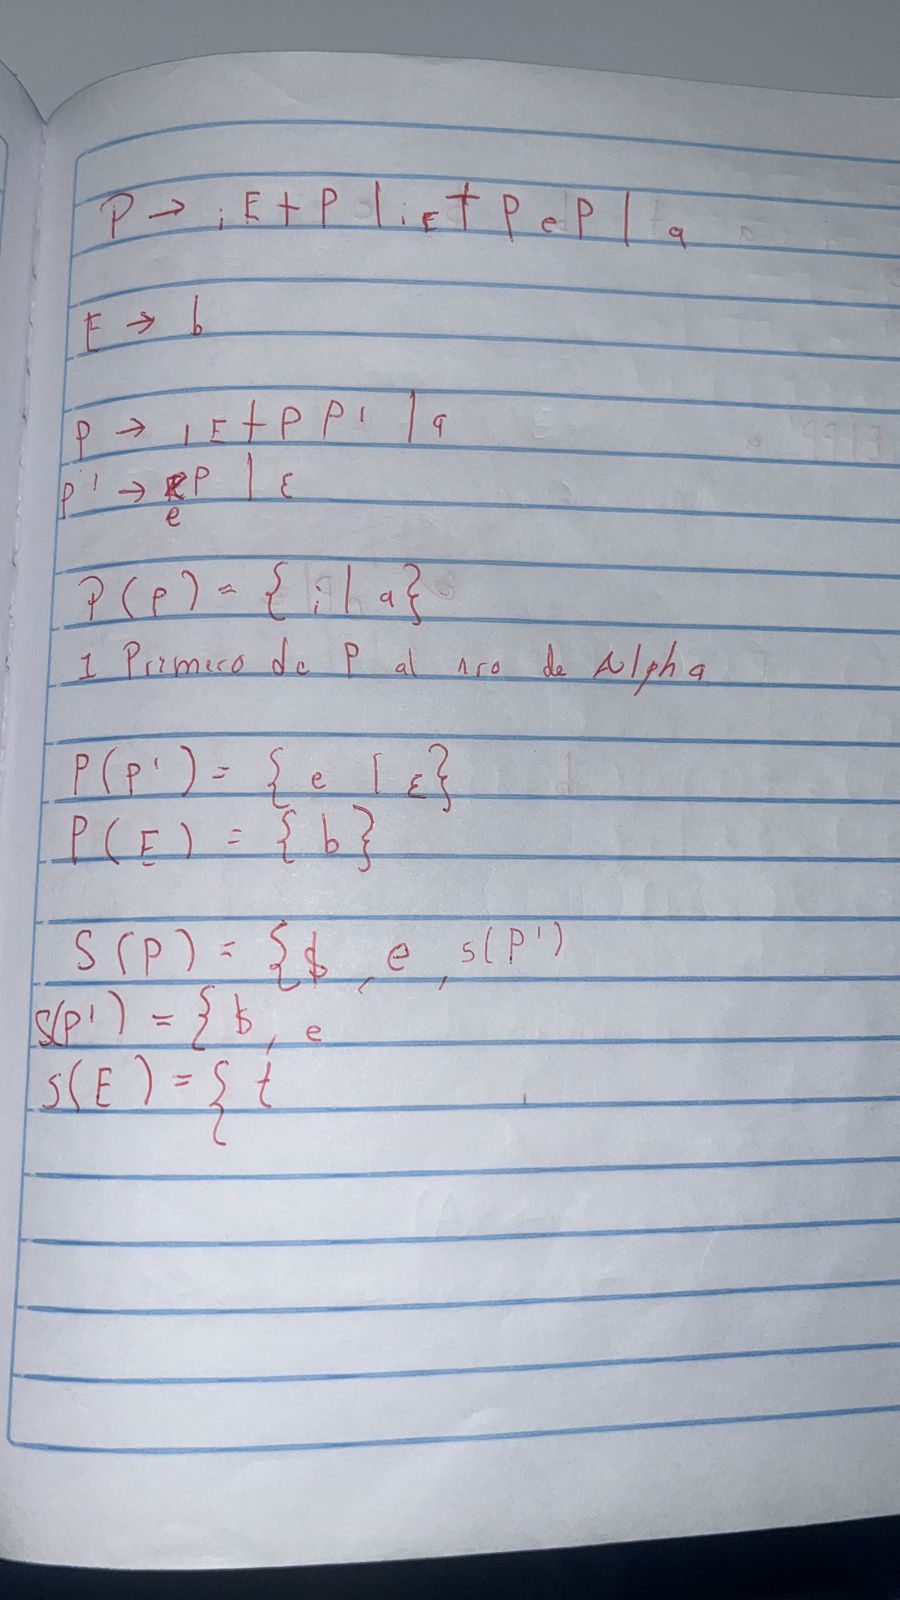 P → iE+P | iE+PeP | a
E → b
P → iE+PP' | a
P' → eP | ε
P(P) = { i | a}
1 Primero de P al nro de Alpha
P(P') = { e | ε}
P(E) = { b }
S(P) = {$, e, s(P')
S(P') = {$, e
S(E) = { t